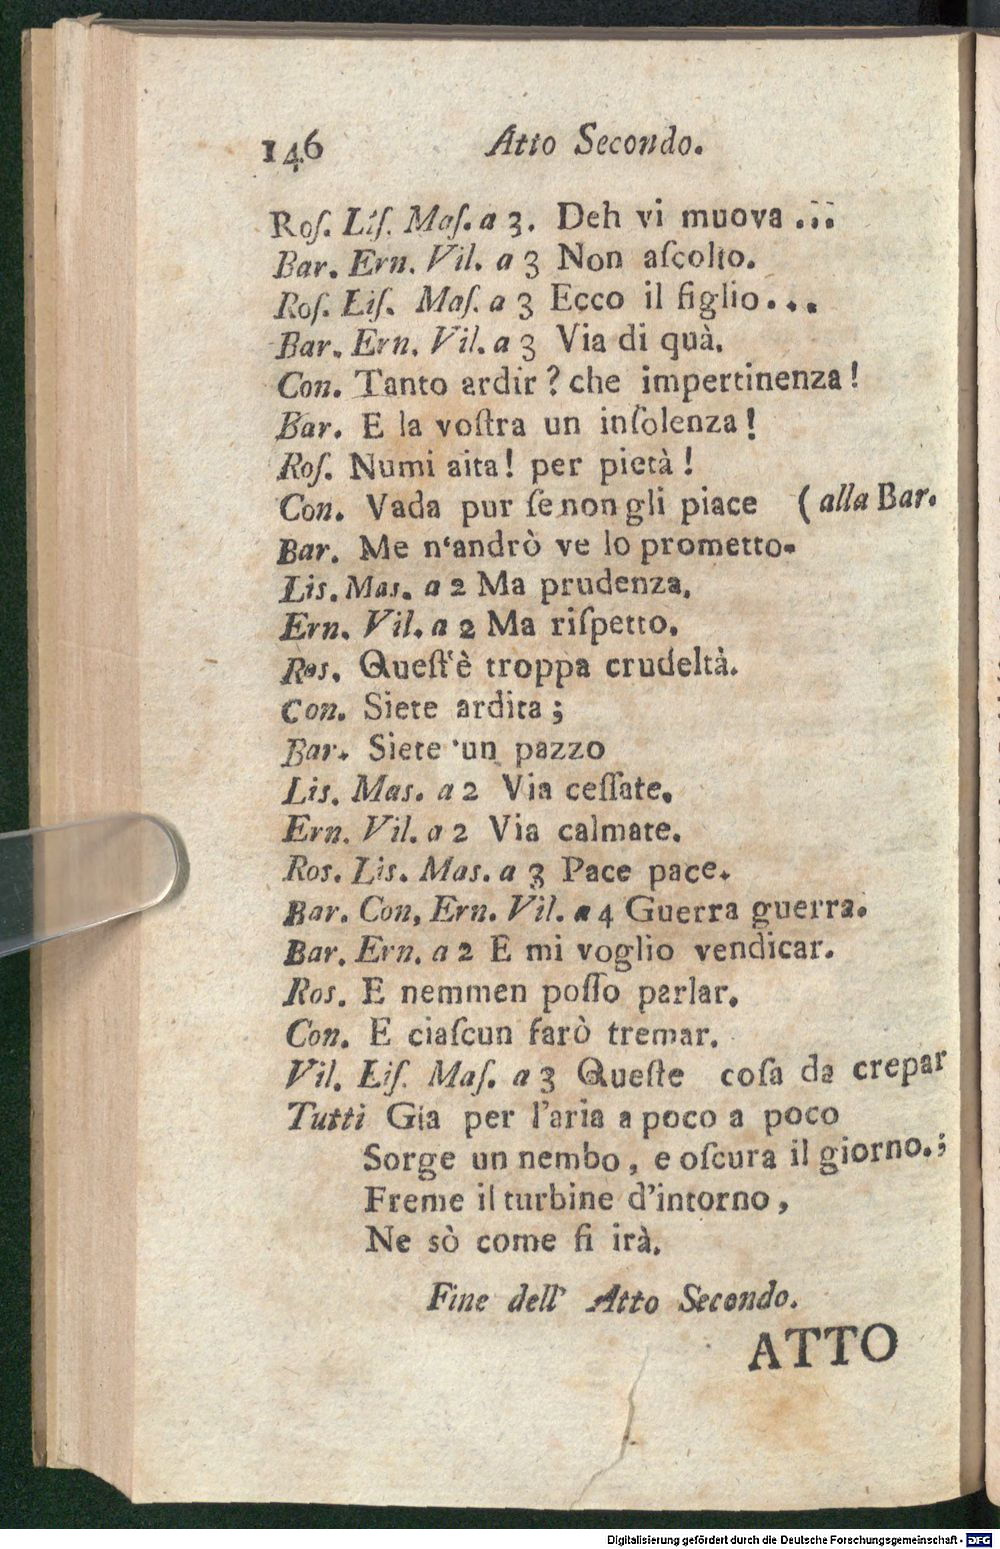 146 Atto Secondo.
Roſ. Liſ. Maſ. a 3. Deh vi muova ...
Bar. Ern. Vil. a 3 Non aſcolto.
Roſ. Liſ. Maſ. a 3 Ecco il figlio...
Bar. Ern. Vil. a 3 Via di quà.
Con. Tanto ardir? che impertinenza!
Bar. E la voſtra un inſolenza!
Roſ. Numi aita! per pietà!
Con. Vada pur ſe non gli piace (alla Bar.
Bar. Me n‘andrò ve lo prometto.
Lis. Mas. a 2 Ma prudenza.
Ern. Vil. a 2 Ma riſpetto.
Ros. Queſt‘è troppa crudeltà.
Con. Siete ardita;
Bar. Siete un pazzo
Lis. Mas. a 2 Via ceſſate.
Ern. Vil. a 2 Via calmate.
Ros. Lis. Mas. a 3 Pace pace.
Bar. Con, Ern. Vil. a 4 Guerra guerra.
Bar. Ern. a 2 E mi voglio vendicar.
Ros. E nemmen poſſo parlar.
Con. E ciaſcun farò tremar.
Vil. Liſ. Maſ. a 3 Queſte coſa da crepar
Tutti Gia per l'aria a poco a poco
Sorge un nembo, e oſcura il giorno.;
Freme il turbine d'intorno,
Ne sò come ſi irà.
Fine dell' Atto Secondo.
ATTO
Digitalisierung gefördert durch die Deutsche Forschungsgemeinschaft - DFG